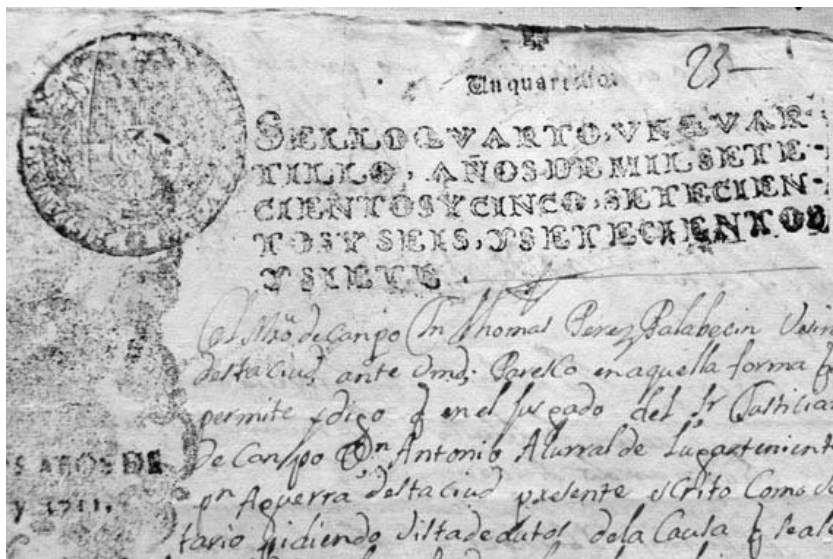 Un quartillo.
23
SELLO QVARTO, VN QVAR-
TILLO, AÑOS DE MIL SETE-
CIENTOS Y CINCO, SETECIEN-
TOS Y SEIS, Y SETECIENTOS
Y SIETE.
El Mro de Canpo Dn Thomas Perez Palabecin Vesin
desta ciud ante Vmd; Paresco en aquella forma q
permite y digo q en el Jusgado del Sr Justicia
de Canpo Dn Antonio Alurralde Lugarthenient
pn Aguerra desta ciud presente escrito Como
tario pidiendo Vista de autos de la Causa q
S AÑOS DE
Y 1711.